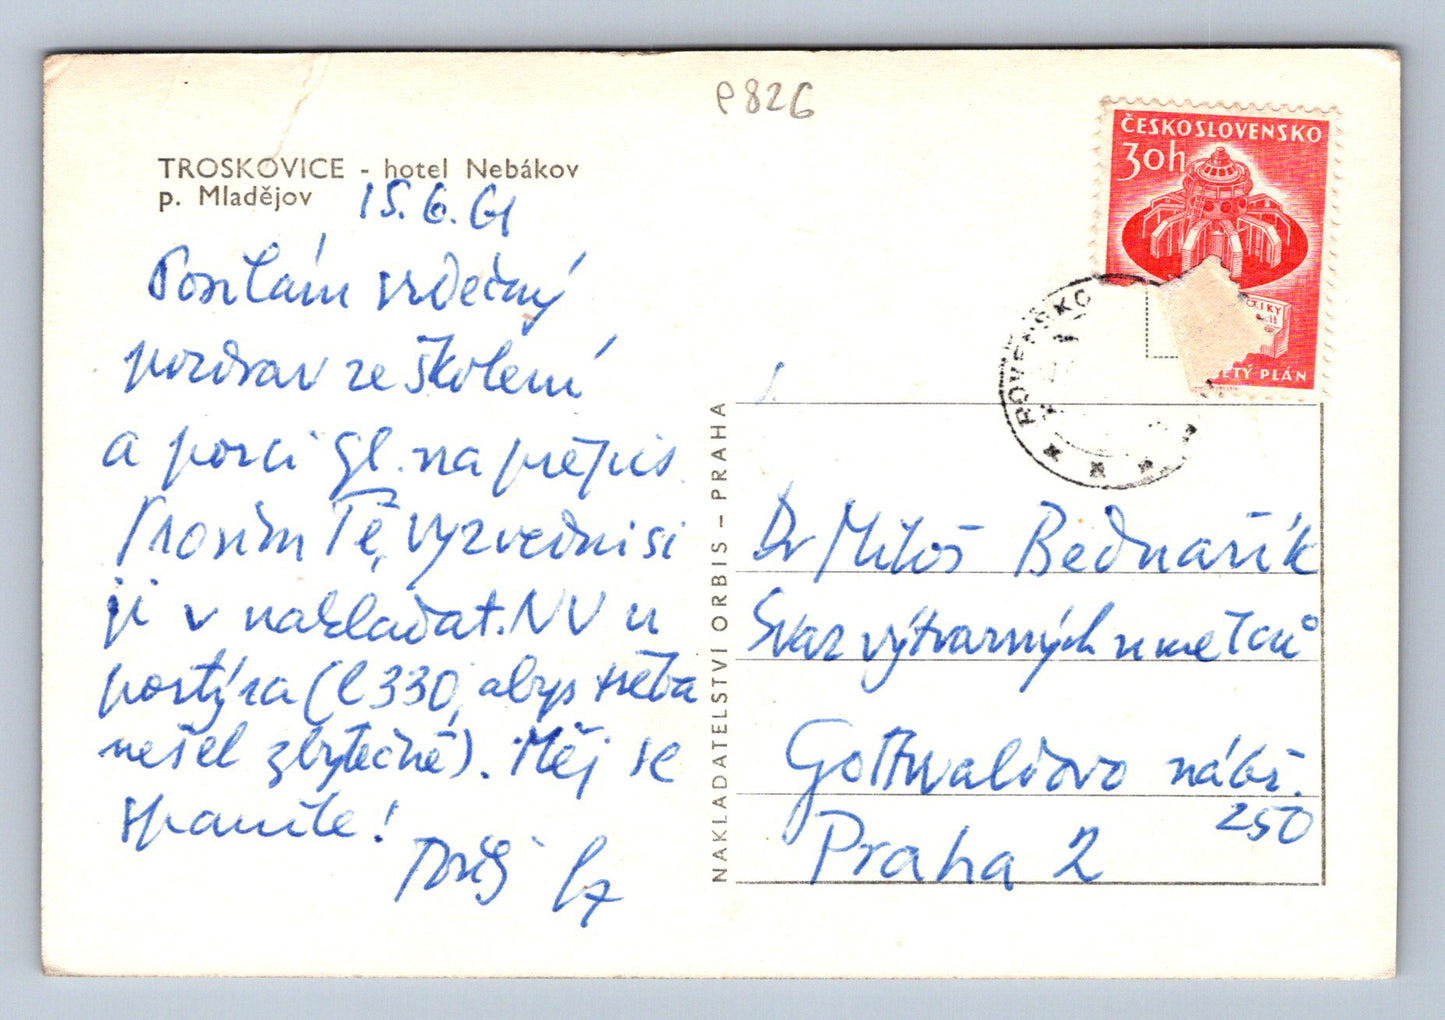 P826
TROSKOVICE - hotel Nebákov
p. Mladějov
15.6.61
Posílám srdečný
pozdrav ze školení
a porci gl. na přepis.
Prosím Tě, vyzvedni si
ji v nakladat. NV u
portýra (č 330, abys třeba
nešel zbytečně). Měj se
spanile!
ČESKOSLOVENSKO
30h
ETÝ PLÁN
ROVENSKO
NAKLADATELSTVÍ ORBIS – PRAHA
Dr Miloš Bednařík
Svaz výtvarných umělců
Gottwaldovo nábř.
250
Praha 2